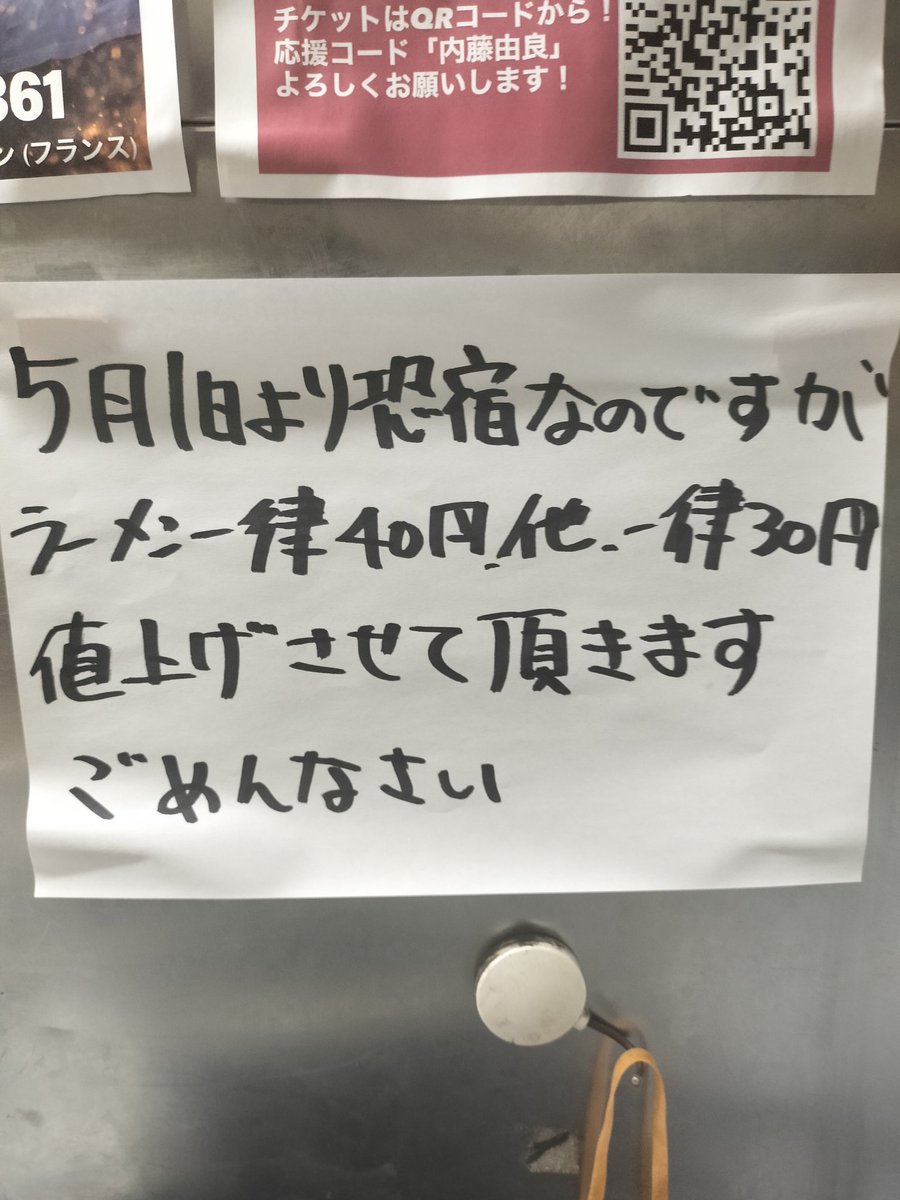 361
ン (フランス)
チケットはQRコードから!
応援コード「内藤由良」
よろしくお願いします!
5月1日より恐宿なのですが
ラーメン一律40円、他、一律30円
値上げさせて頂きます
ごめんなさい